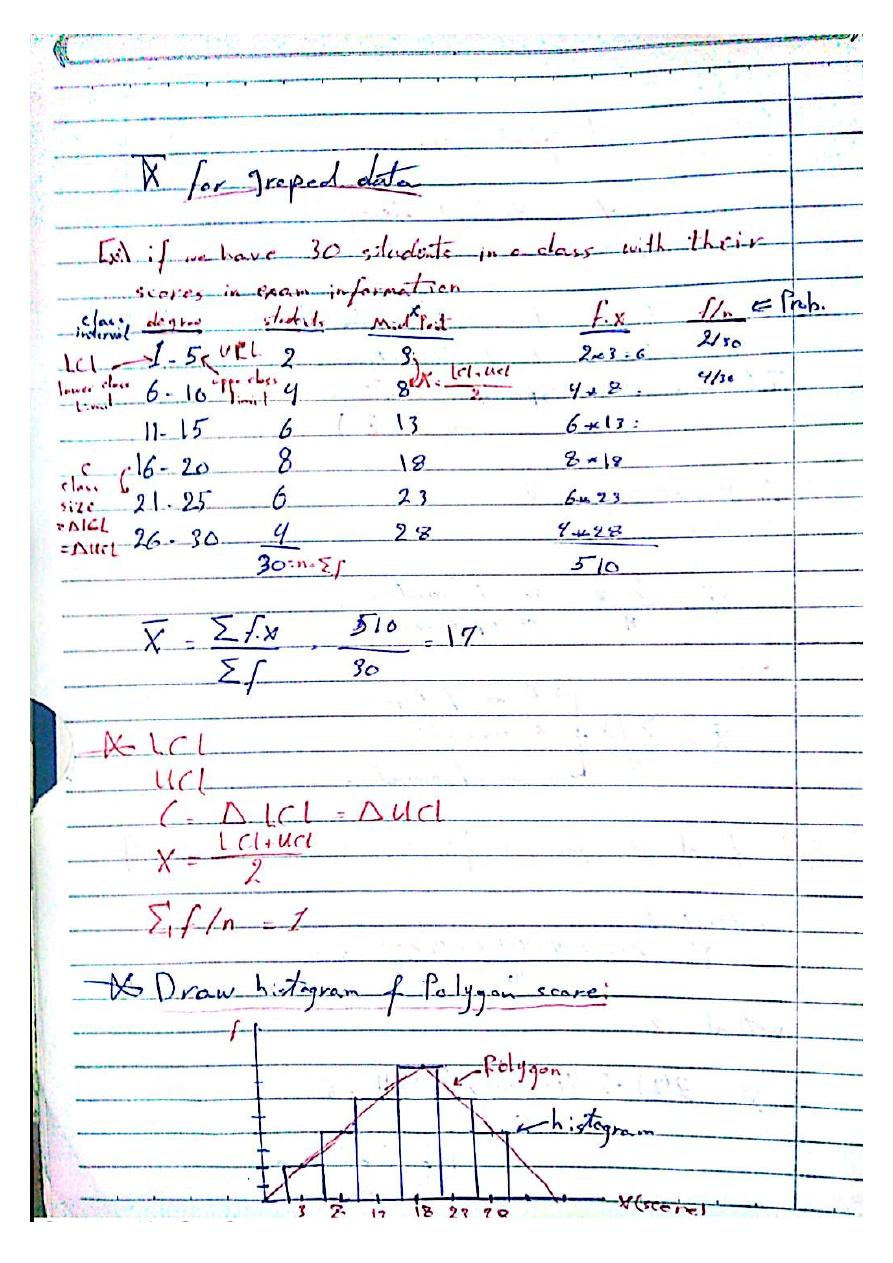 X̄ for greped data
Ex:) if we have 30 students in a class with their
scores in exam information
class interval degree students Mid Point x f.x f/n ⇐ Prob.
LCL → 1 - 5 UCL 2 3 2×3 = 6 2/30
lower class limit 6 - 10 upper class limit 4 8 X = LCL+UCL / 2 4 × 8 = 4/30
11 - 15 6 13 6 × 13 =
16 - 20 8 18 8 × 18
C class size 21 - 25 6 23 6 × 23
= ΔLCL = ΔUCL 26 - 30 4 28 4 × 28
30 = n = Σf 510
X̄ = Σ f.x / Σ f = 510 / 30 = 17
LCL
UCL
C = Δ LCL = Δ UCL
X = LCL + UCL / 2
Σ f/n = 1
Draw histogram & Polygon score:
f
Polygon
histogram
3 18 23 28 X(score)